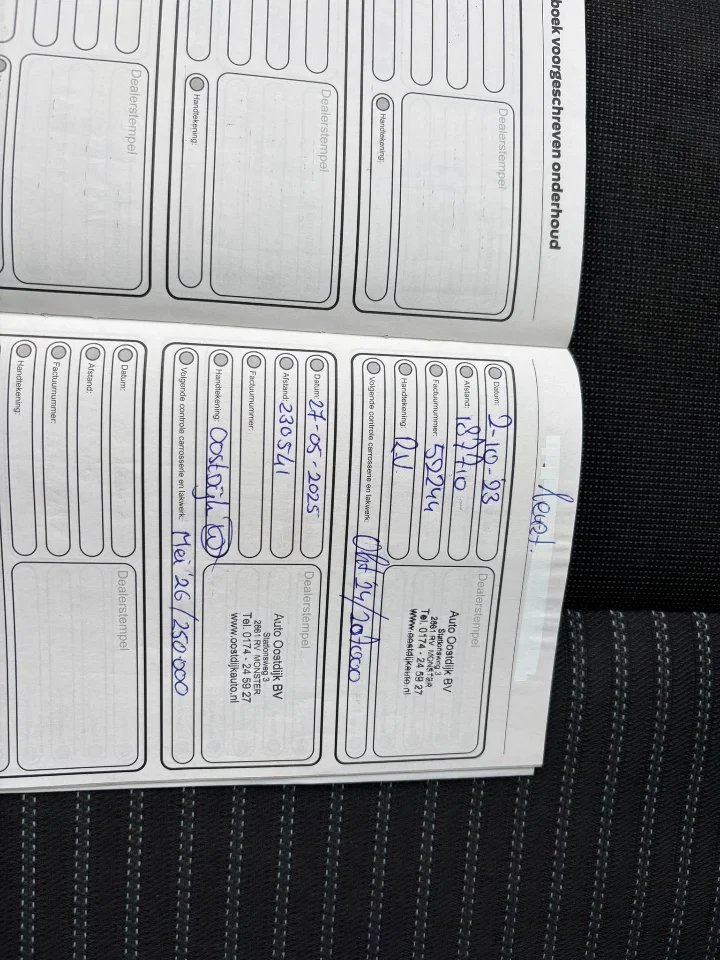 boek voorgeschreven onderhoud
Dealerstempel
Handtekening:
Dealerstempel
Handtekening:
Dealerstempel
Datum: 2-10-'23
Afstand: 187710
Factuurnummer: 59244
Handtekening: R.V.
Volgende controle carrosserie en lakwerk: Okt '24/207.000
Dealerstempel
Auto Oostdijk BV
Stationsweg 3
2681 RV MONSTER
Tel. 0174 - 24 59 27
www.oostdijkauto.nl
Datum: 27-05-2025
Afstand: 230541
Factuurnummer:
Handtekening: Oostdijk
Volgende controle carrosserie en lakwerk: Mei '26/250.000
Dealerstempel
Auto Oostdijk BV
Stationsweg 3
2681 RV MONSTER
Tel. 0174 - 24 59 27
www.oostdijkauto.nl
Datum:
Afstand:
Factuurnummer:
Handtekening:
Dealerstempel